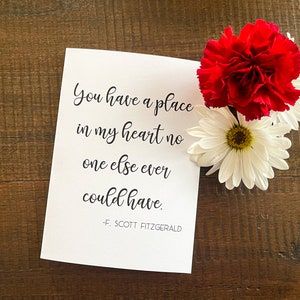 You have a place
in my heart no
one else ever
could have.
-F. SCOTT FITZGERALD